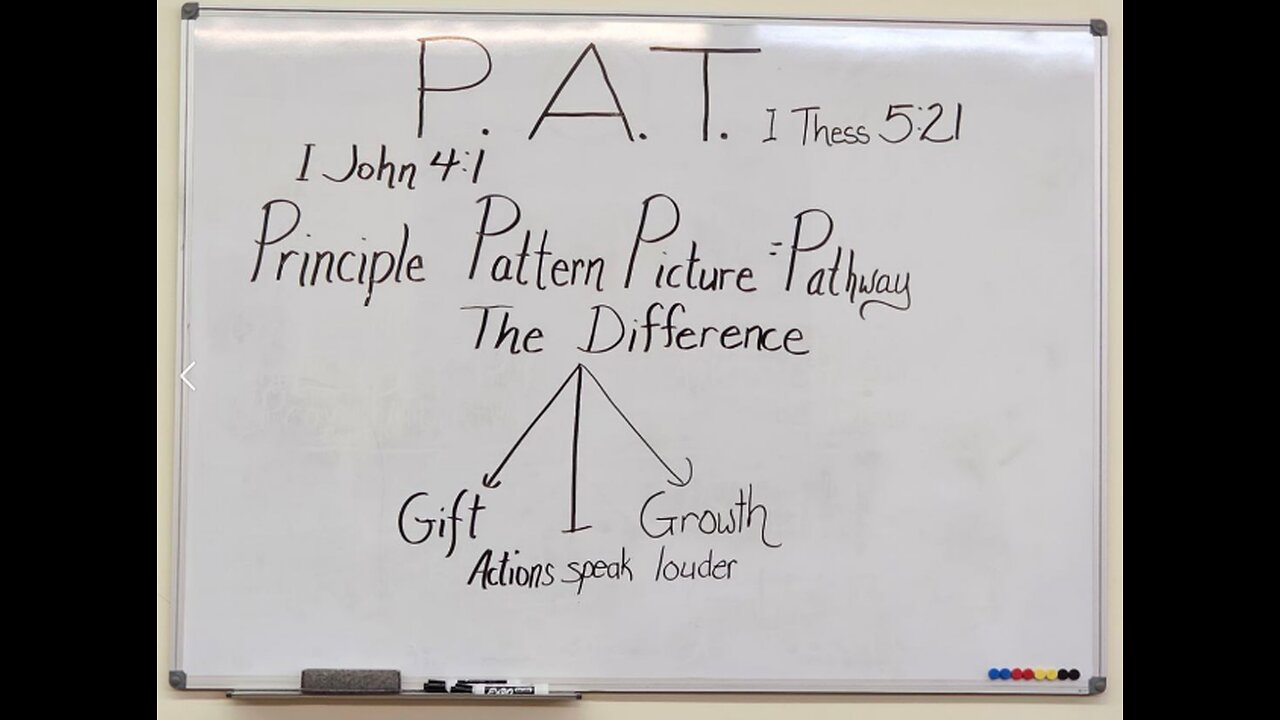 P. A. T. I Thess 5:21
I John 4:1
Principle Pattern Picture = Pathway
The Difference
Gift Growth
Actions speak louder
EXPO